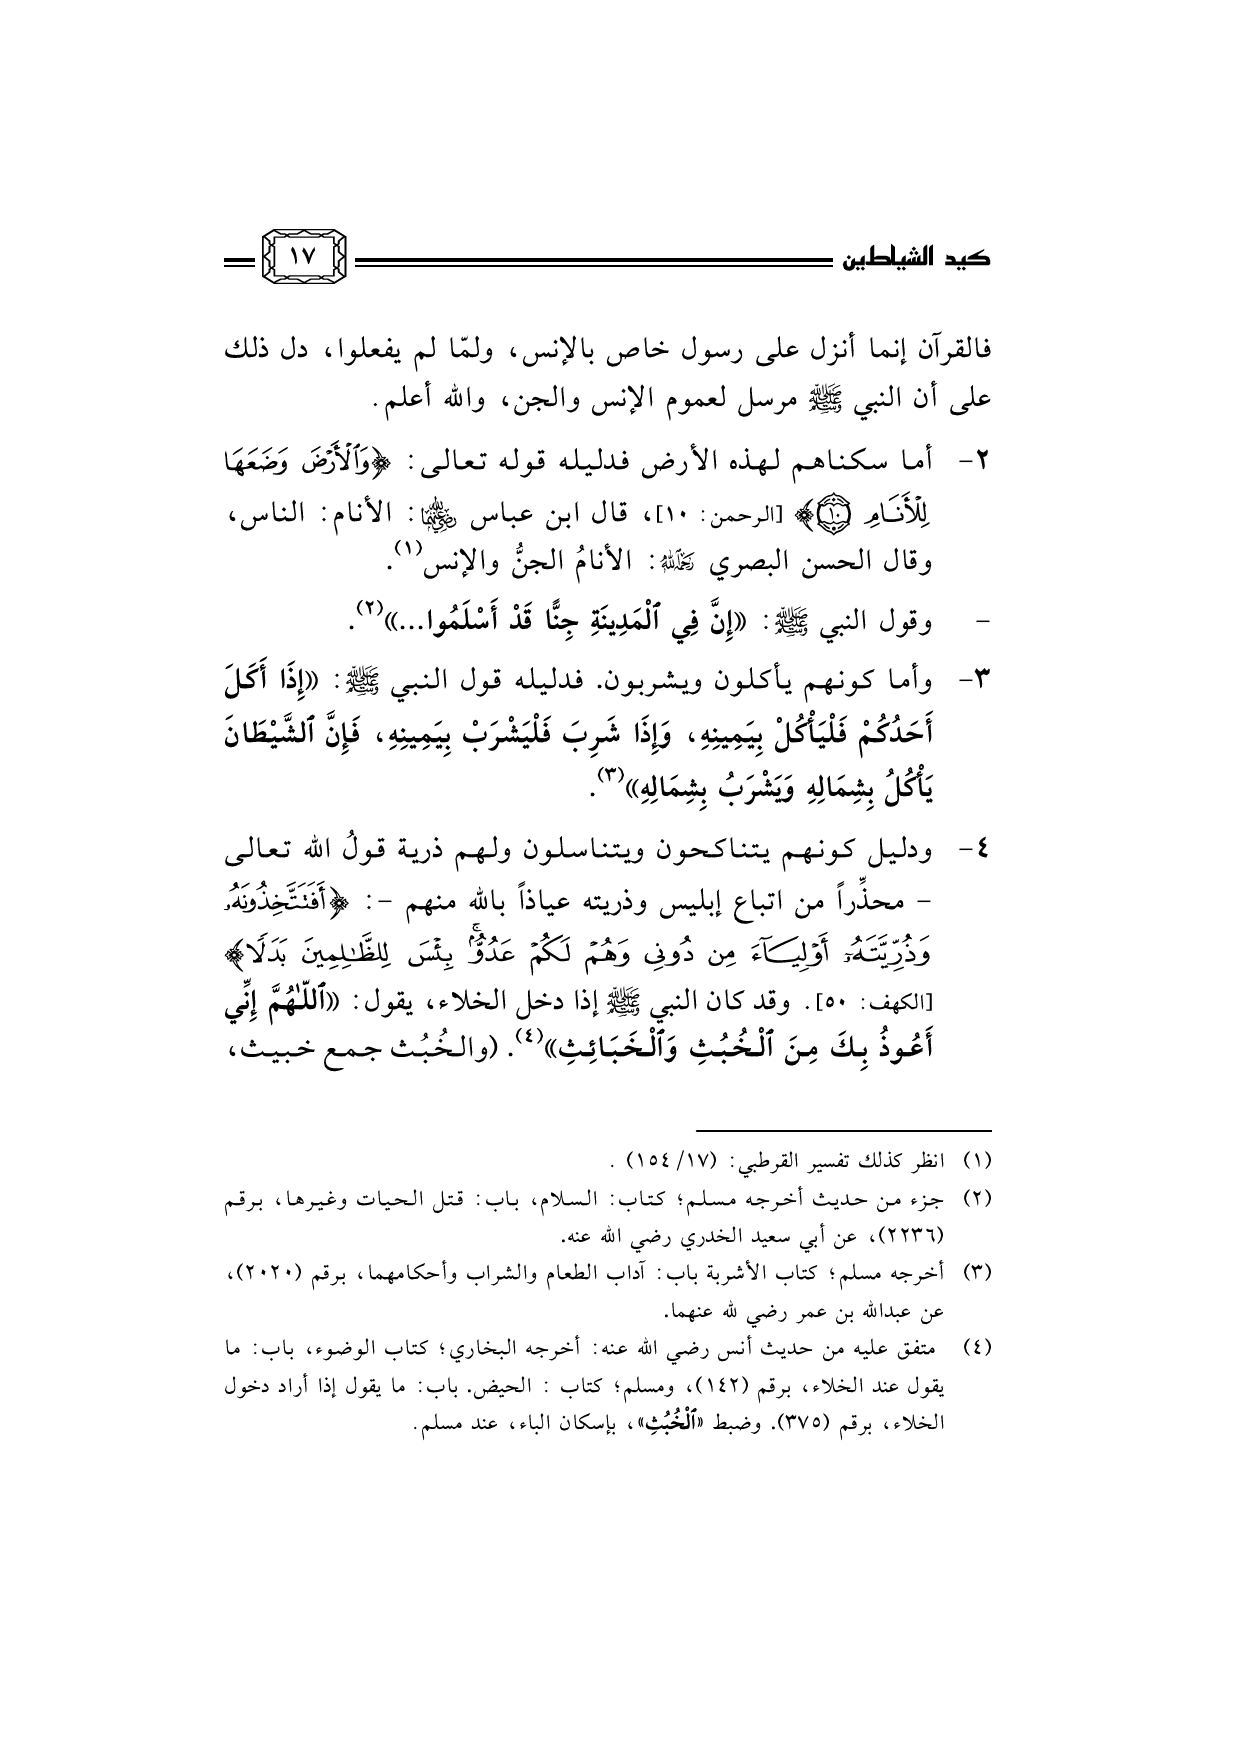 كيد الشياطين
١٧
فالقرآن إنما أنزل على رسول خاص بالإنس، ولمّا لم يفعلوا، دل ذلك
على أن النبي ﷺ مرسل لعموم الإنس والجن، والله أعلم.
٢- أما سكناهم لهذه الأرض فدليله قوله تعالى: ﴿وَٱلْأَرْضَ وَضَعَهَا
لِلْأَنَامِ ۝١٠﴾ [الرحمن: ١٠]، قال ابن عباس رضي الله عنهما: الأنام: الناس،
وقال الحسن البصري رحمه الله: الأنامُ الجنُّ والإنس(١).
- وقول النبي ﷺ: «إِنَّ فِي ٱلْمَدِينَةِ جِنًّا قَدْ أَسْلَمُوا...»(٢).
٣- وأما كونهم يأكلون ويشربون. فدليله قول النبي ﷺ: «إِذَا أَكَلَ
أَحَدُكُمْ فَلْيَأْكُلْ بِيَمِينِهِ، وَإِذَا شَرِبَ فَلْيَشْرَبْ بِيَمِينِهِ، فَإِنَّ ٱلشَّيْطَانَ
يَأْكُلُ بِشِمَالِهِ وَيَشْرَبُ بِشِمَالِهِ»(٣).
٤- ودليل كونهم يتناكحون ويتناسلون ولهم ذرية قولُ الله تعالى
- محذِّراً من اتباع إبليس وذريته عياذاً بالله منهم -: ﴿أَفَتَتَّخِذُونَهُۥ
وَذُرِّيَّتَهُۥٓ أَوْلِيَآءَ مِن دُونِى وَهُمْ لَكُمْ عَدُوٌّۢ ۚ بِئْسَ لِلظَّـٰلِمِينَ بَدَلًا﴾
[الكهف: ٥٠]. وقد كان النبي ﷺ إذا دخل الخلاء، يقول: «ٱللّٰهُمَّ إِنِّي
أَعُوذُ بِكَ مِنَ ٱلْخُبُثِ وَٱلْخَبَائِثِ»(٤). (والخُبُث جمع خبيث،
(١) انظر كذلك تفسير القرطبي: (١٧/ ١٥٤) .
(٢) جزء من حديث أخرجه مسلم؛ كتاب: السلام، باب: قتل الحيات وغيرها، برقم
(٢٢٣٦)، عن أبي سعيد الخدري رضي الله عنه.
(٣) أخرجه مسلم؛ كتاب الأشربة باب: آداب الطعام والشراب وأحكامهما، برقم (٢٠٢٠)،
عن عبدالله بن عمر رضي لله عنهما.
(٤) متفق عليه من حديث أنس رضي الله عنه: أخرجه البخاري؛ كتاب الوضوء، باب: ما
يقول عند الخلاء، برقم (١٤٢)، ومسلم؛ كتاب : الحيض. باب: ما يقول إذا أراد دخول
الخلاء، برقم (٣٧٥). وضبط «ٱلْخُبُثِ»، بإسكان الباء، عند مسلم.